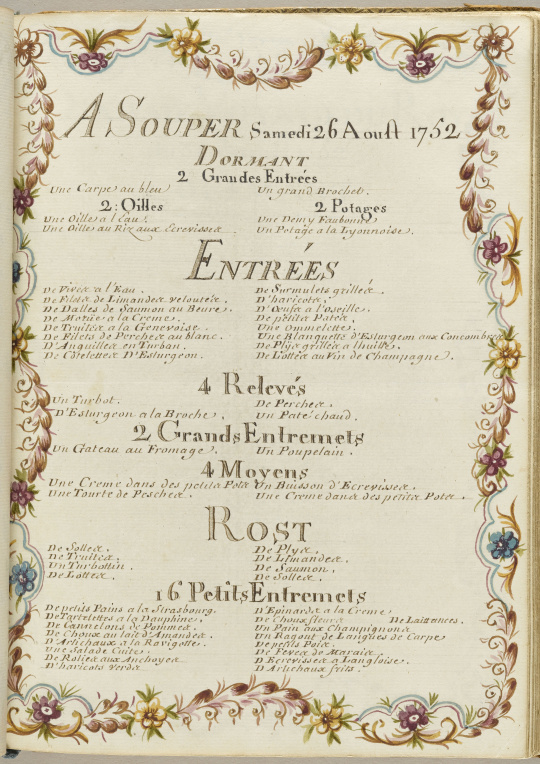 A SOUPER Samedi 26 Aoust 1752
DORMANT
2 Grandes Entrées
Une Carpe au bleu
Un grand Brochet.
2: Oilles
2 Potages
Une Oille a l'Eau.
Une Demy Faubonne
Une Oille au Riz aux Ecrevisses
Un Potage a la Lyonnoise.
ENTRÉES
De Vives a l'Eau.
De Surmulets grillés
De Filets de Limandes veloutés.
D'haricots.
De Dalles de Saumon au Beure.
D'Oeufs a l'Oseille.
De Morüe a la Creme.
De petits Patés.
De Truites a la Genevoise.
Une Ommelette.
De Filets de Perches au blanc.
Une Blanquette d'Esturgeon aux Concombres
D'Anguilles en Turban.
De Plys grillés a l'huille.
De Côtelettes D'Esturgeon.
De Lottes au Vin de Champagne.
4 Relevés
Un Turbot.
De Perches.
D'Esturgeon a la Broche.
Un Paté chaud.
2 Grands Entremets
Un Gateau au Fromage.
Un Poupelain.
4 Moyens
Une Creme dans des petits Pots
Un Buisson d'Ecrevisses.
Une Tourte de Pesches.
Une Creme dans des petits Pots.
ROST
De Solles.
De Plys.
De Truites.
De Limandes.
Un Turbottin.
De Saumon.
De Lottes.
De Solles.
16 Petits Entremets
De petits Pains a la Strasbourg.
D'Epinards a la Creme
De Tartelettes a la Dauphine.
De Choux fleurs
De Laittances.
De Cannelons de Pommes.
Un Pain aux Champignons
De Choux au lait d'Amandes.
Un Ragout de Langues de Carpe
D'Artichaux a la Ravigotte.
De petits Pois.
Une Salade Cuite.
De Feves de Marais.
De Roties aux Anchoyes
D'Ecrevisses a Langloise.
D'haricots verds
D'Artichaux frits.